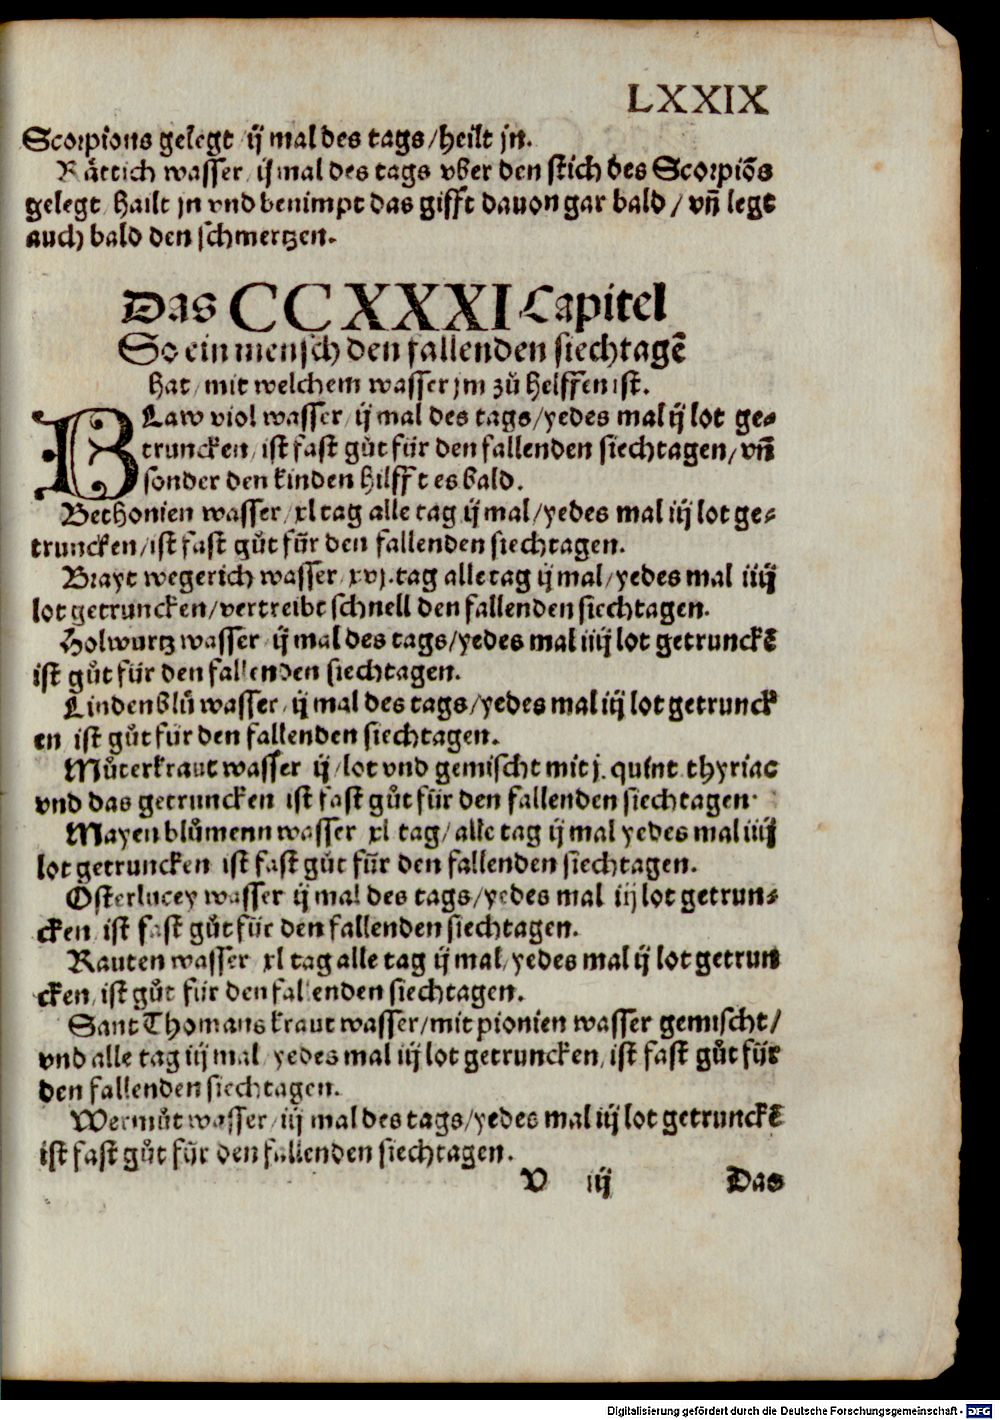 LXXIX
Scorpions gelegt/ ij mal des tags/heilt jn.
Rättich wasser/ ij mal des tags vber den stich des Scorpiõs
gelegt/ hailt jn vnd benimpt das gifft dauon gar bald/ vñ legt
auch bald den schmertzen.
Das CCXXXI Capitel
So ein mensch den fallenden siechtagẽ
hat/ mit welchem wasser jm zů helffen ist.
BLaw viol wasser/ ij mal des tags/yedes mal ij lot ge⸗
truncken/ ist fast gůt für den fallenden siechtagen/ vñ
sonder den kinden hilfft es bald.
Bethonien wasser/ xl tag alle tag ij mal/yedes mal iij lot ge⸗
truncken/ist fast gůt für den fallenden siechtagen.
Brayt wegerich wasser/ xvj. tag alle tag ij mal/yedes mal iiij
lot getruncken/vertreibt schnell den fallenden siechtagen.
Holwurtz wasser/ ij mal des tags/yedes mal iiij lot getrunckẽ
ist gůt für den fallenden siechtagen.
Lindenblů wasser/ ij mal des tags/yedes mal iij lot getrunck
en/ ist gůt für den fallenden siechtagen.
Můterkraut wasser ij/lot vnd gemischt mit j. quint thyriac
vnd das getruncken ist fast gůt für den fallenden siechtagen.
Mayen blůmenn wasser xl tag/ alle tag ij mal yedes mal iiij
lot getruncken ist fast gůt für den fallenden siechtagen.
Osterlucey wasser ij mal des tags/yedes mal iij lot getrun⸗
cken/ ist fast gůt für den fallenden siechtagen.
Rauten wasser/ xl tag alle tag ij mal/yedes mal ij lot getrun
cken/ ist gůt für den fallenden siechtagen.
Sant Thomans kraut wasser/mit pionien wasser gemischt/
vnd alle tag iij mal/ yedes mal iij lot getruncken/ ist fast gůt für
den fallenden siechtagen.
Wermůt wasser/ iij mal des tags/yedes mal iij lot getrunckẽ
ist fast gůt für den fallenden siechtagen.
V iij Das
Digitalisierung gefördert durch die Deutsche Forschungsgemeinschaft - DFG